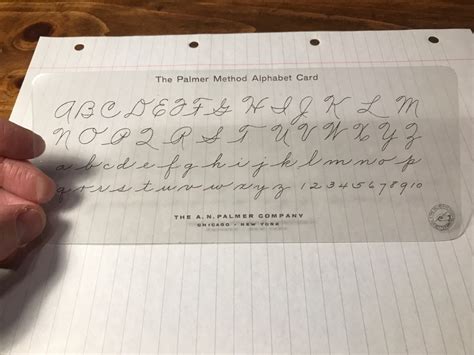 The Palmer Method Alphabet Card
A B C D E F G H I J K L M
N O P Q R S T U V W X Y Z
a b c d e f g h i j k l m n o p
q r s t u v w x y z 1 2 3 4 5 6 7 8 9 10
THE A. N. PALMER COMPANY
CHICAGO - NEW YORK